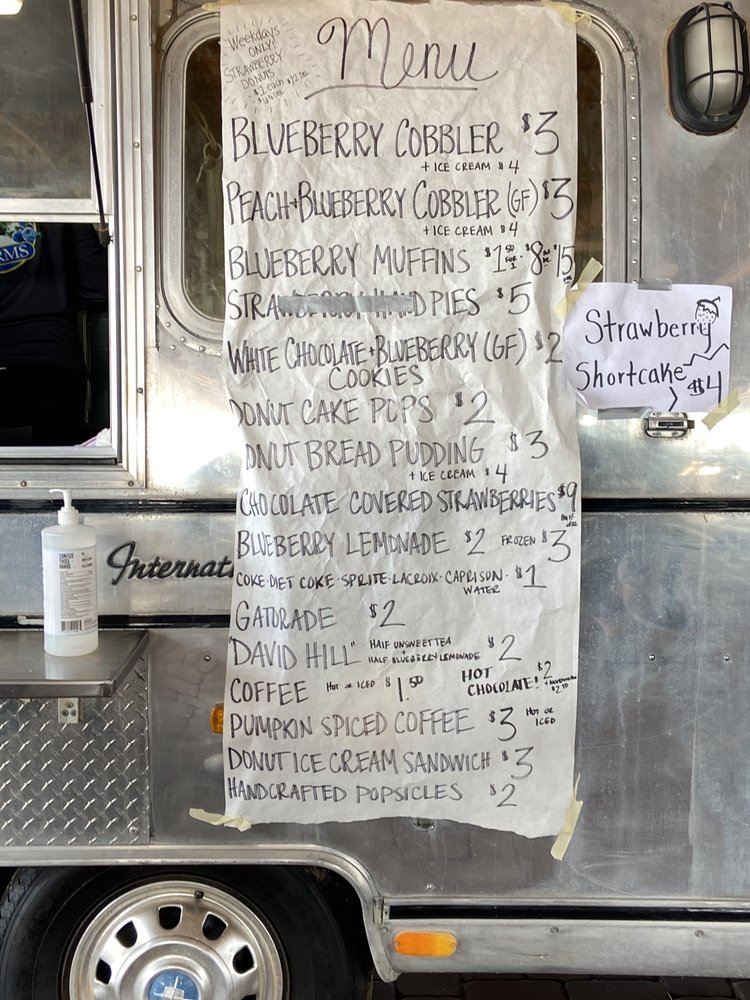 Weekdays
ONLY!
STRAWBERRY
DONUTS
$1 each
Menu
BLUEBERRY COBBLER $3
+ ICE CREAM $4
PEACH+BLUEBERRY COBBLER (GF) $3
+ ICE CREAM $4
BLUEBERRY MUFFINS $1.50 FOR 1 $8 $15
STRAWBERRY HAND PIES $5
WHITE CHOCOLATE+BLUEBERRY (GF) $2
COOKIES
DONUT CAKE POPS $2
DONUT BREAD PUDDING $3
+ ICE CREAM $4
CHOCOLATE COVERED STRAWBERRIES $9
BLUEBERRY LEMONADE $2 FROZEN $3
COKE·DIET COKE·SPRITE·LACROIX·CAPRISON· $1
WATER
GATORADE $2
"DAVID HILL" HALF UNSWEET TEA + HALF BLUEBERRY LEMONADE $2
COFFEE HOT or ICED $1.50
HOT
CHOCOLATE! $2
$2.50
PUMPKIN SPICED COFFEE $3 HOT OR ICED
DONUT ICE CREAM SANDWICH $3
HANDCRAFTED POPSICLES $2
Strawberry
Shortcake $4
RMS
SANITIZE
THOSE
HANDS
Internat